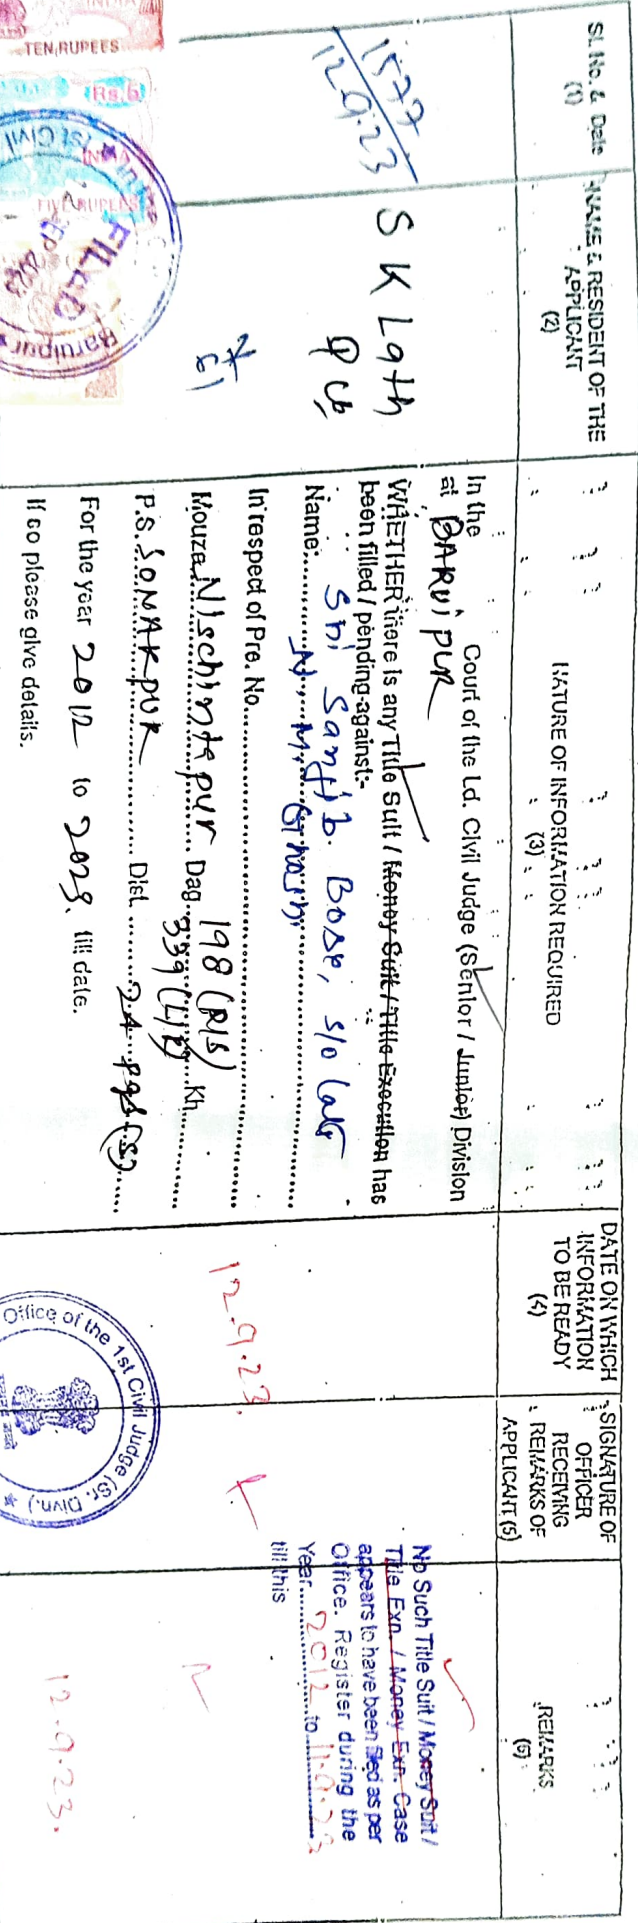 Sl. No. & Date
(1)
NAME & RESIDENT OF THE
APPLICANT
(2)
NATURE OF INFORMATION REQUIRED
(3)
DATE ON WHICH
INFORMATION
TO BE READY
(4)
SIGNATURE OF
OFFICER
RECEIVING
REMARKS OF
APPLICANT (5)
REMARKS
(6)
1577
12.9.23
S K Lath
In the Court of the Ld. Civil Judge (Senior / Junior) Division
at BARUIPUR
WHETHER there is any Title Suit / Money Suit / Title Execution has
been filled / pending against:-
Name: Shi Sanjib Bose, S/o Late
N. M. Ghosh
In respect of Pre. No.
Mouza Nischintapur Dag 198 (R/S)
339 (L/R) Kh
P.S. SONARPUR Dist 24 pgs (S)
For the year 2012 to 2023 till date.
If so please give details.
12.9.23.
No Such Title Suit / Money Suit /
Title Exn. / Money Exn. Case
appears to have been filed as per
Office. Register during the
Year 2012 to 11.9.23
till this
12.9.23.
TEN RUPEES
Rs.5
INDIA
FIVE RUPEES
FILED
SEP 2023
Baruipur
Office of the 1st Civil Judge (Sr. Divn.)